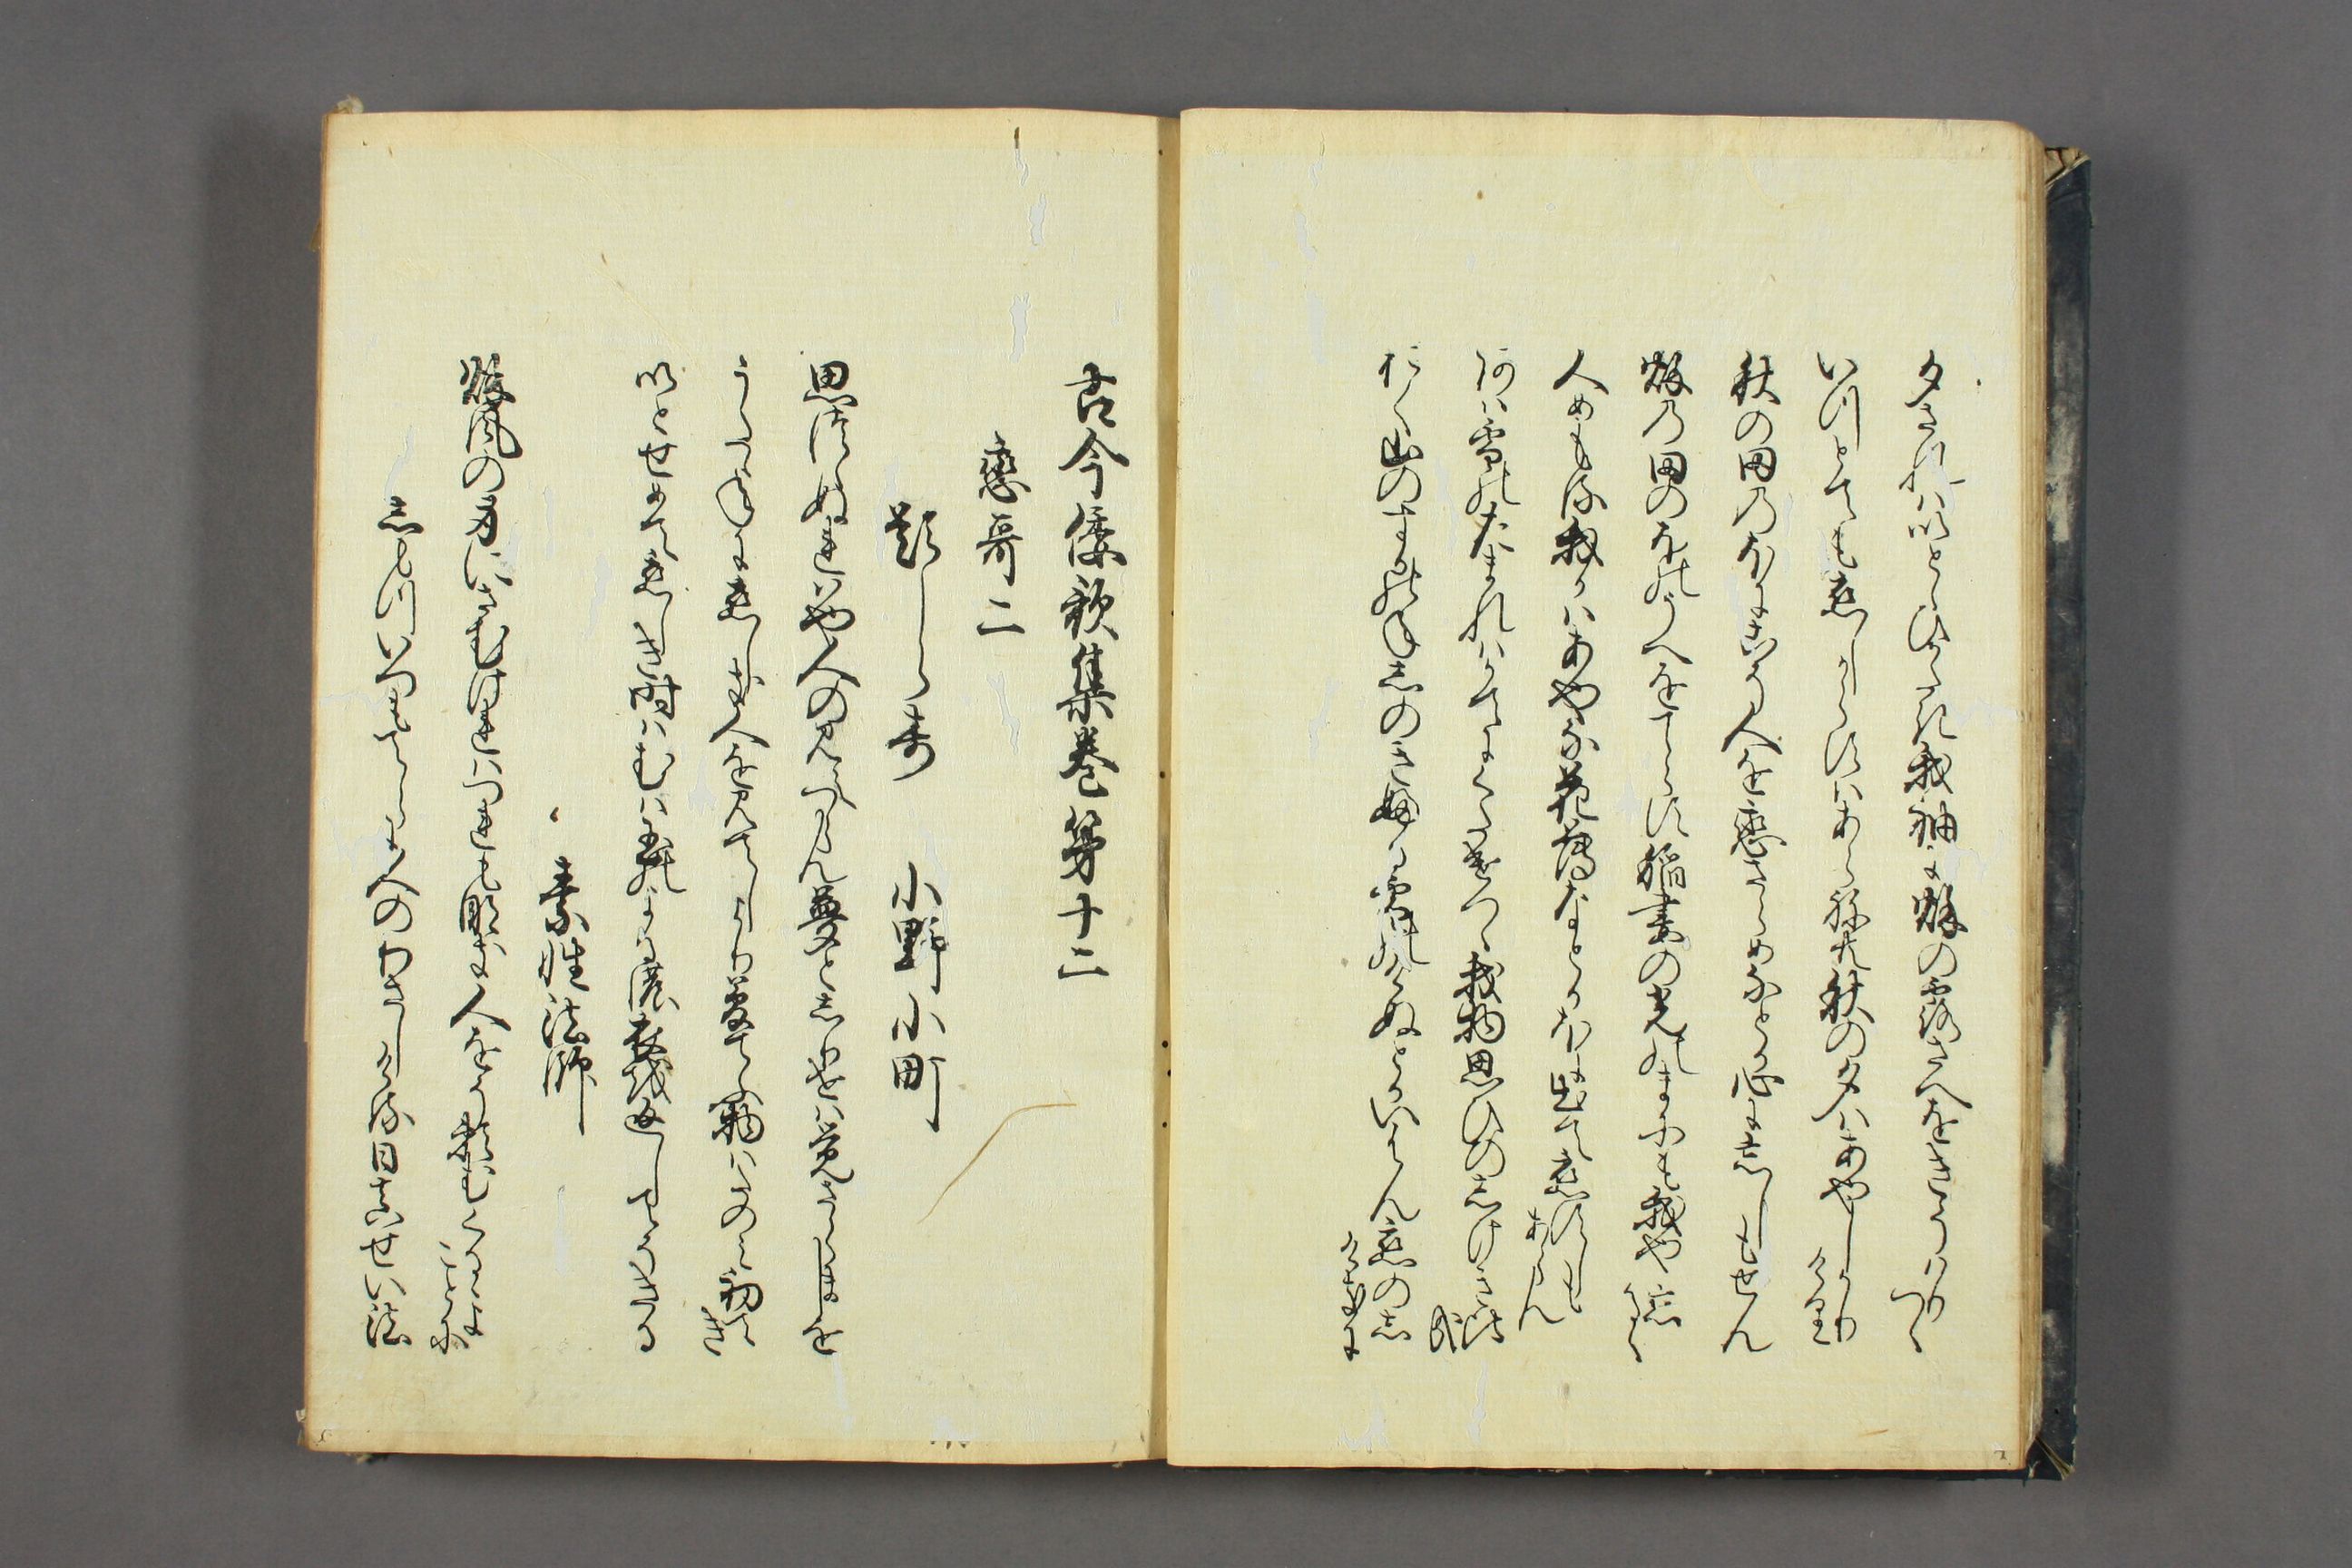 夕されはいとゝひかたき我袖に秋の露さへをきそはりつゝ
いつとても恋しからすはあらねとも秋の夕はあやしかりけり
秋の田のほにこそ人を恋さらめなとか心に忘しもせん
秋の田のほのうへをてらす稲妻の光のまにも我や忘るゝ
人めもる我かはあやな花薄なとかほに出て恋すしもあらん
あは雪のたまれはかてにくたけつゝ我物思ひのしけき比哉
おく山のすかのねしのき降雪のけぬとかいはん恋のしけきに
古今倭歌集巻第十二
恋哥二
題しらす　小野小町
思つゝぬれはや人の見えつらん夢としりせは覚さらましを
うたゝねに恋しき人を見てしより夢てふ物はたのみ初てき
いとせめて恋しき時はむは玉のよるの衣を返してそきる
素性法師
秋風の身にさむけれはつれもなき人をそ頼むくるゝ夜ことに
しもついつもてらに人のわさしける日真せい法